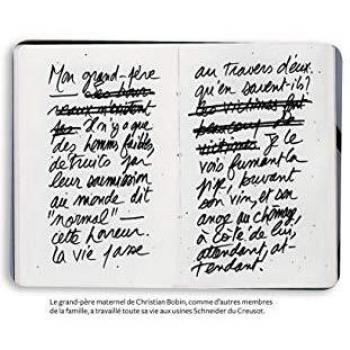 Mon grand-père
— les bour-
reaux n'existent
pas. Il n'y a que
des hommes faibles,
détruits par
leur soumission
au monde dit
"normal" —
cette horreur.
la vie passe
au travers d'eux.
qu'en savent-ils?
Les victimes font
beaucoup de
victimes. Je le
vois fumant la
pipe, buvant
son vin, et son
ange au chômage,
à côté de lui,
attendant, at-
tendant.
Le grand-père maternel de Christian Bobin, comme d'autres membres
de la famille, a travaillé toute sa vie aux usines Schneider du Creusot.